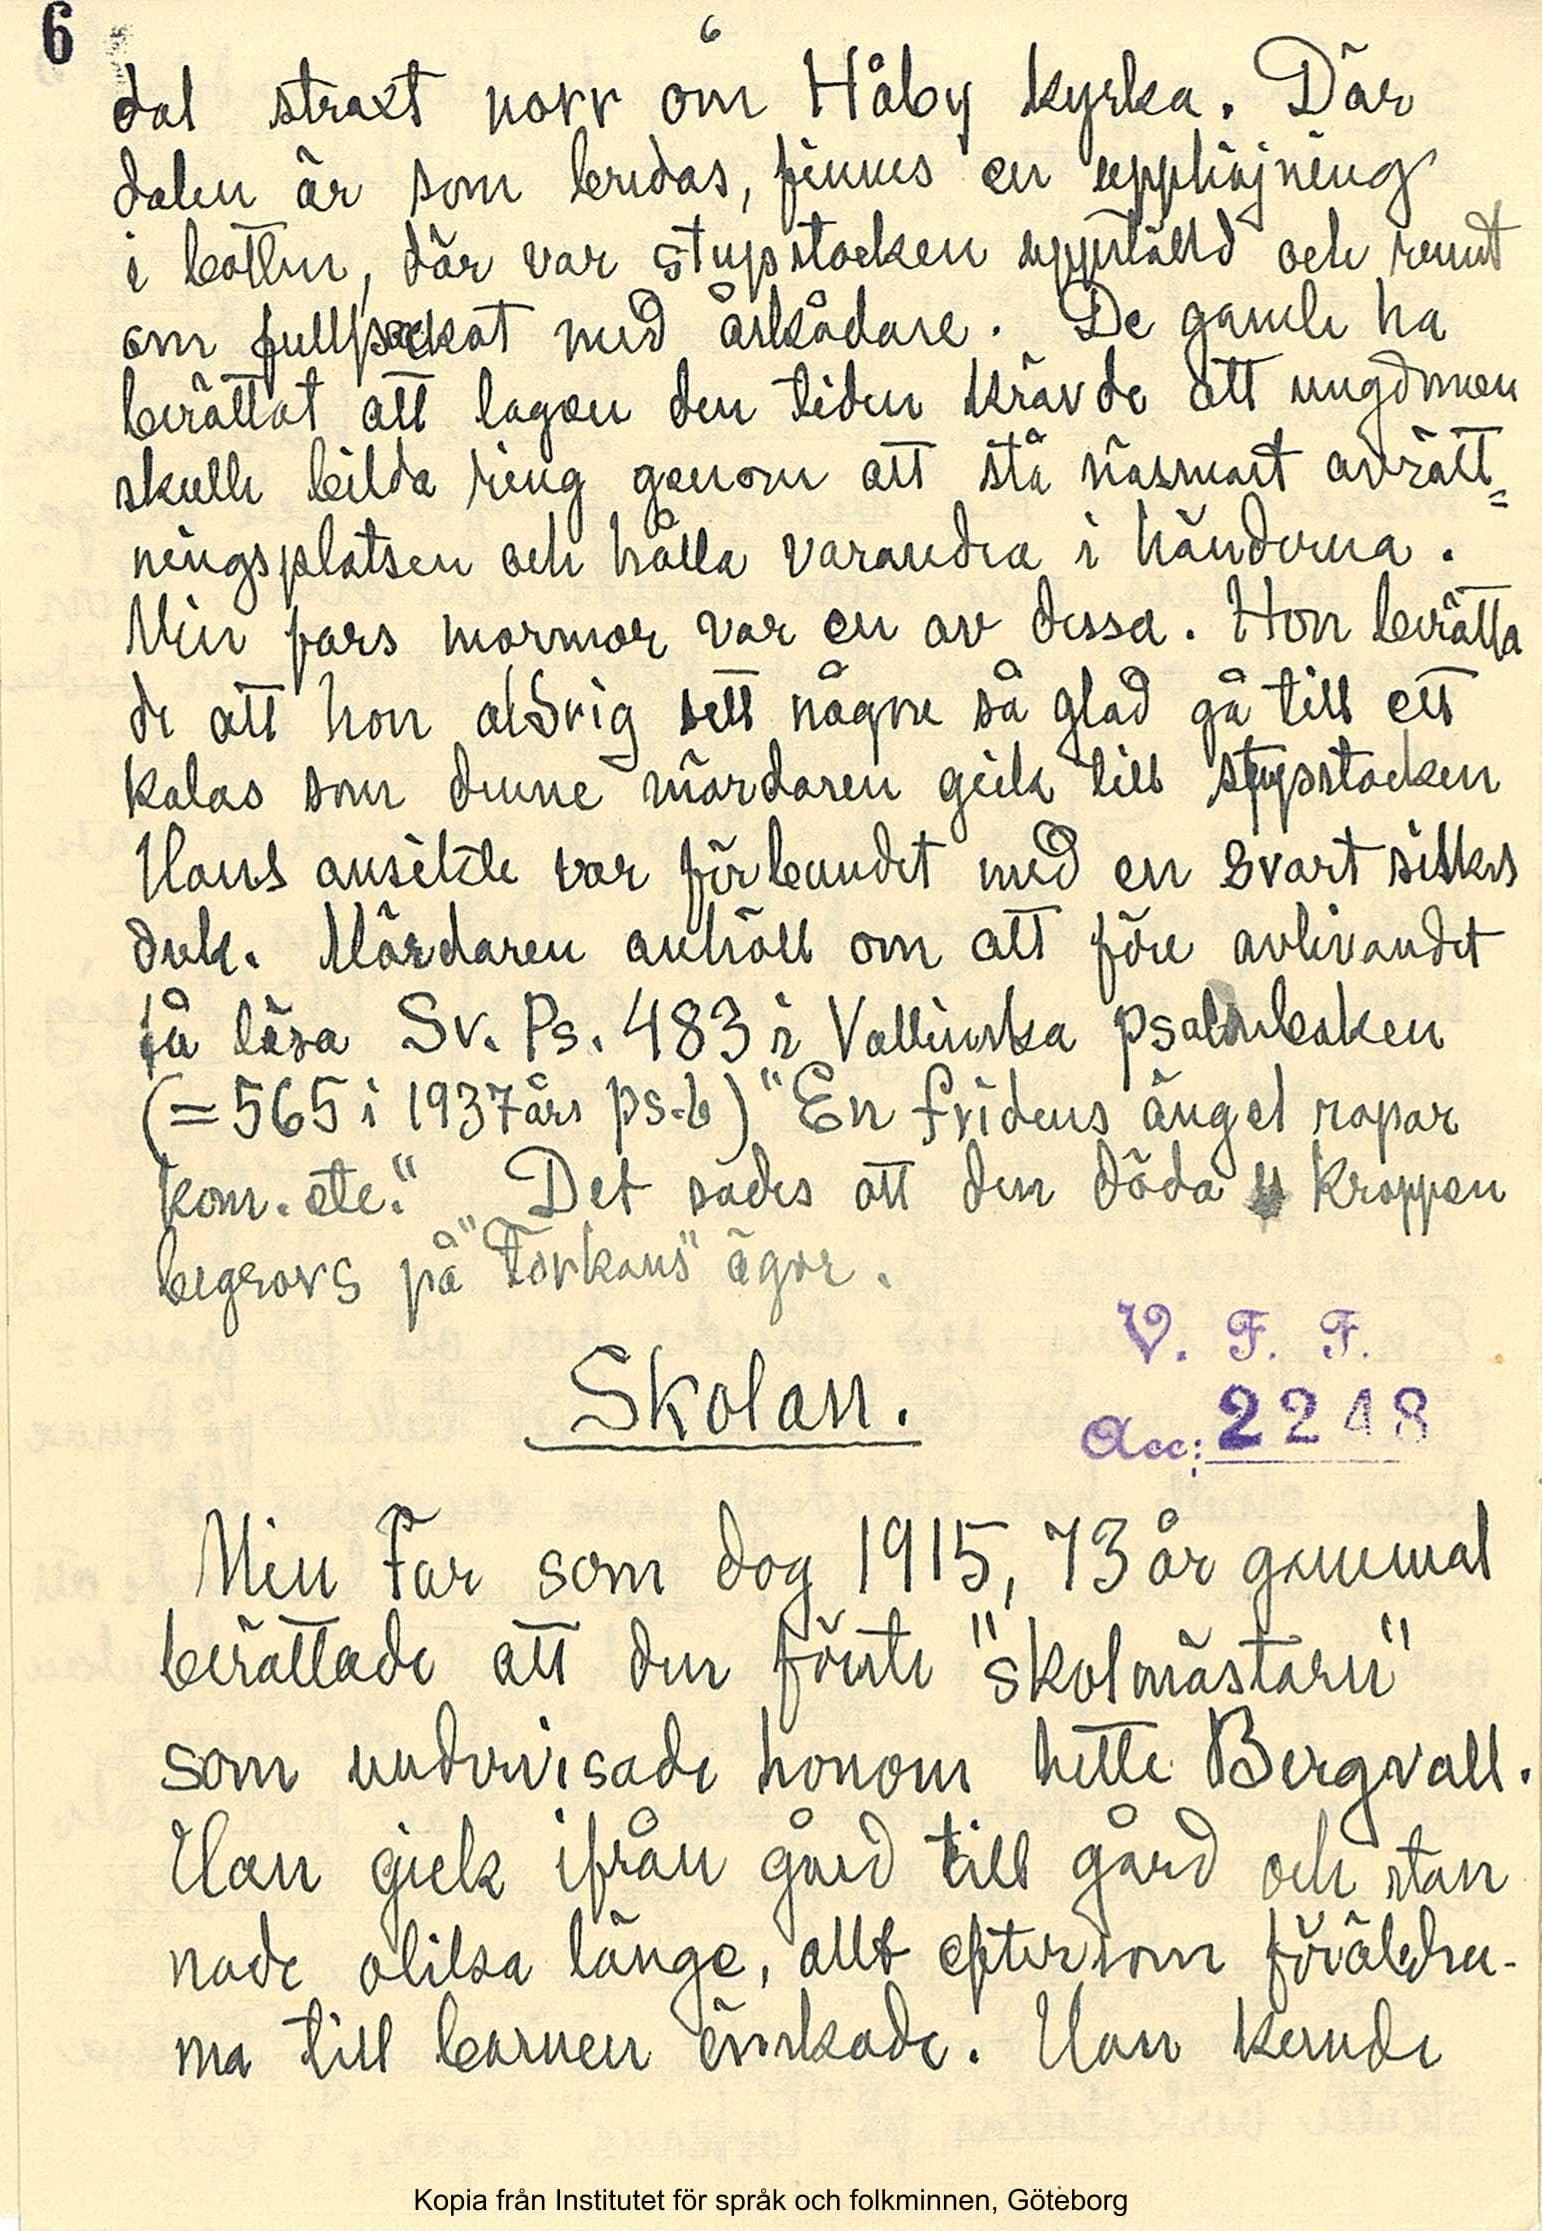 6
6
dal straxt norr om Håby kyrka. Där
dalen är som bredas, finnes en upphöjning
i botten, där var stupstocken uppställd och runt
om fullpackat med åskådare. De gamle ha
berättat att lagen den tiden krävde att ungdomen
skulle bilda ring genom att stå näsmast avrätt=
ningsplatsen och hålla varandra i händerna.
Min fars mormor var en av dessa. Hon berätta
de att hon aldrig sett någon så glad gå till ett
kalas som denne mördaren gick till stupstocken
Hans ansikte var förbundet med en svart silkes
duk. Mördaren anhöll om att före avlivandet
få läsa Sv. Ps. 483 i Vallinska psalmboken
(=565 i 1937 års ps-b) "En fridens ängel ropar
kom. etc." Det sades att den döda kroppen
begrovs på "Torkans" ägor.
V. F. F.
Skolan.
Acc: 2248
Min Far som dog 1915, 73 år gammal
berättade att den förste "skolmästaren"
som undervisade honom hette Bergvall.
Han gick ifrån gård till gård och stan
nade olika länge, allt eftersom föräldra-
rna till barnen önskade. Han kunde
Kopia från Institutet för språk och folkminnen, Göteborg